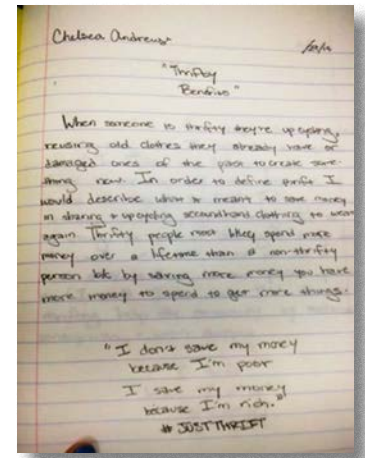 Chelsea Andrews
"Thrifty
Benefits"
When someone is thrifty they're upcycling,
reusing old clothes they already have or
damaged ones of the past to create some-
thing new. In order to define thrift I
would describe what is meant to save money
in sharing & upcycling secondhand clothing to wear
again. Thrifty people most likely spend more
money over a lifetime than a non-thrifty
person b/c by saving more money you have
more money to spend to get more things.
"I don't save my money
because I'm poor
I save my money
because I'm rich."
# JUST THRIFT